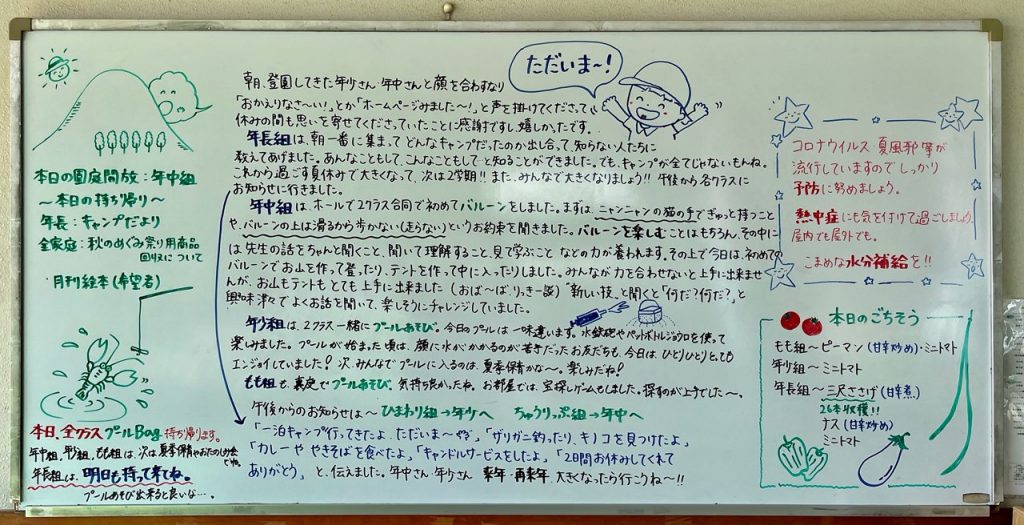 本日の園庭開放:年中組
〜本日の持ち帰り〜
年長:キャンプだより
全家庭:秋のめぐみ祭り用商品
回収について
月刊絵本(希望者)
本日、全クラスプールBag持ち帰ります。
年中組、年少組、もも組は、次は夏季保育やおたのしみ会
でね。
年長組は、明日も持って来てね。
プールあそび出来ると良いな…。
ただいま〜!
朝、登園してきた年少さん・年中さんと顔を合わすなり
「おかえりなさ〜い!」とか「ホームページみました〜!」と声を掛けてくださって
休みの間も思いを寄せてくださっていたことに感謝ですし嬉しかったです。
年長組は、朝一番に集まってどんなキャンプだったのか出し合って、知らない人たちに
教えてあげました。あんなこともして、こんなこともしてと知ることができました。でも、キャンプが全てじゃないもんね。
これから過ごす夏休みで大きくなって、次は2学期!!また、みんなで大きくなりましょう!!午後から各クラスに
お知らせに行きました。
年中組は、ホールで2クラス合同で初めてバルーンをしました。まずは、ニャンニャンの猫の手でぎゅっと持つこと
や、バルーンの上は滑るから歩かない(走らない)というお約束を聞きました。バルーンを楽しむことはもちろん、その中に
は先生の話をちゃんと聞くこと、聞いて理解すること、見て学ぶことなどの力が養われます。その上で今日は、初めての
バルーンでお山を作って登ったり、テントを作って中に入ったりしました。みんなが力を合わせないと上手に出来ませ
んが、お山もテントもとても上手に出来ました(おば〜ば、りっきー談)"新しい技"と聞くと「何だ?何だ?」と
興味津々でよくお話を聞いて、楽しそうにチャレンジしていました。
年少組は、2クラス一緒にプールあそび。今日のプールは一味違います。水鉄砲やペットボトルジョウロを使って
楽しみました。プールが始まった頃は、顔に水がかかるのが苦手だったお友だちも、今日は、ひとりひとりとっても
エンジョイしていました!次、みんなでプールに入るのは、夏季保育かな〜。楽しみだね!
もも組も、真夏でプールあそび。気持ち良かったね。お部屋では、宝探しゲームもしました。探すのが上手でした〜。
午後からのお知らせは〜 ひまわり組→年少へ ちゅうりっぷ組→年中へ
「一泊キャンプ行ってきたよ、ただいま〜」「ザリガニ釣ったり、キノコを見つけたよ」
「カレーややきそばを食べたよ」「キャンドルサービスをしたよ」「2日間お休みしてくれて
ありがとう」と、伝えました。年中さん・年少さん 来年・再来年、大きくなったら行こうね〜!!
コロナウイルス、夏風邪等が
流行していますので しっかり
予防に努めましょう。
熱中症にも気を付けて過ごしましょう。
屋内でも屋外でも。
こまめな水分補給を!!
本日のごちそう
もも組〜ピーマン(甘辛炒め)・ミニトマト
年少組〜ミニトマト
年長組〜三尺ささげ(甘辛煮)
26本収穫!!
ナス(甘辛炒め)
ミニトマト